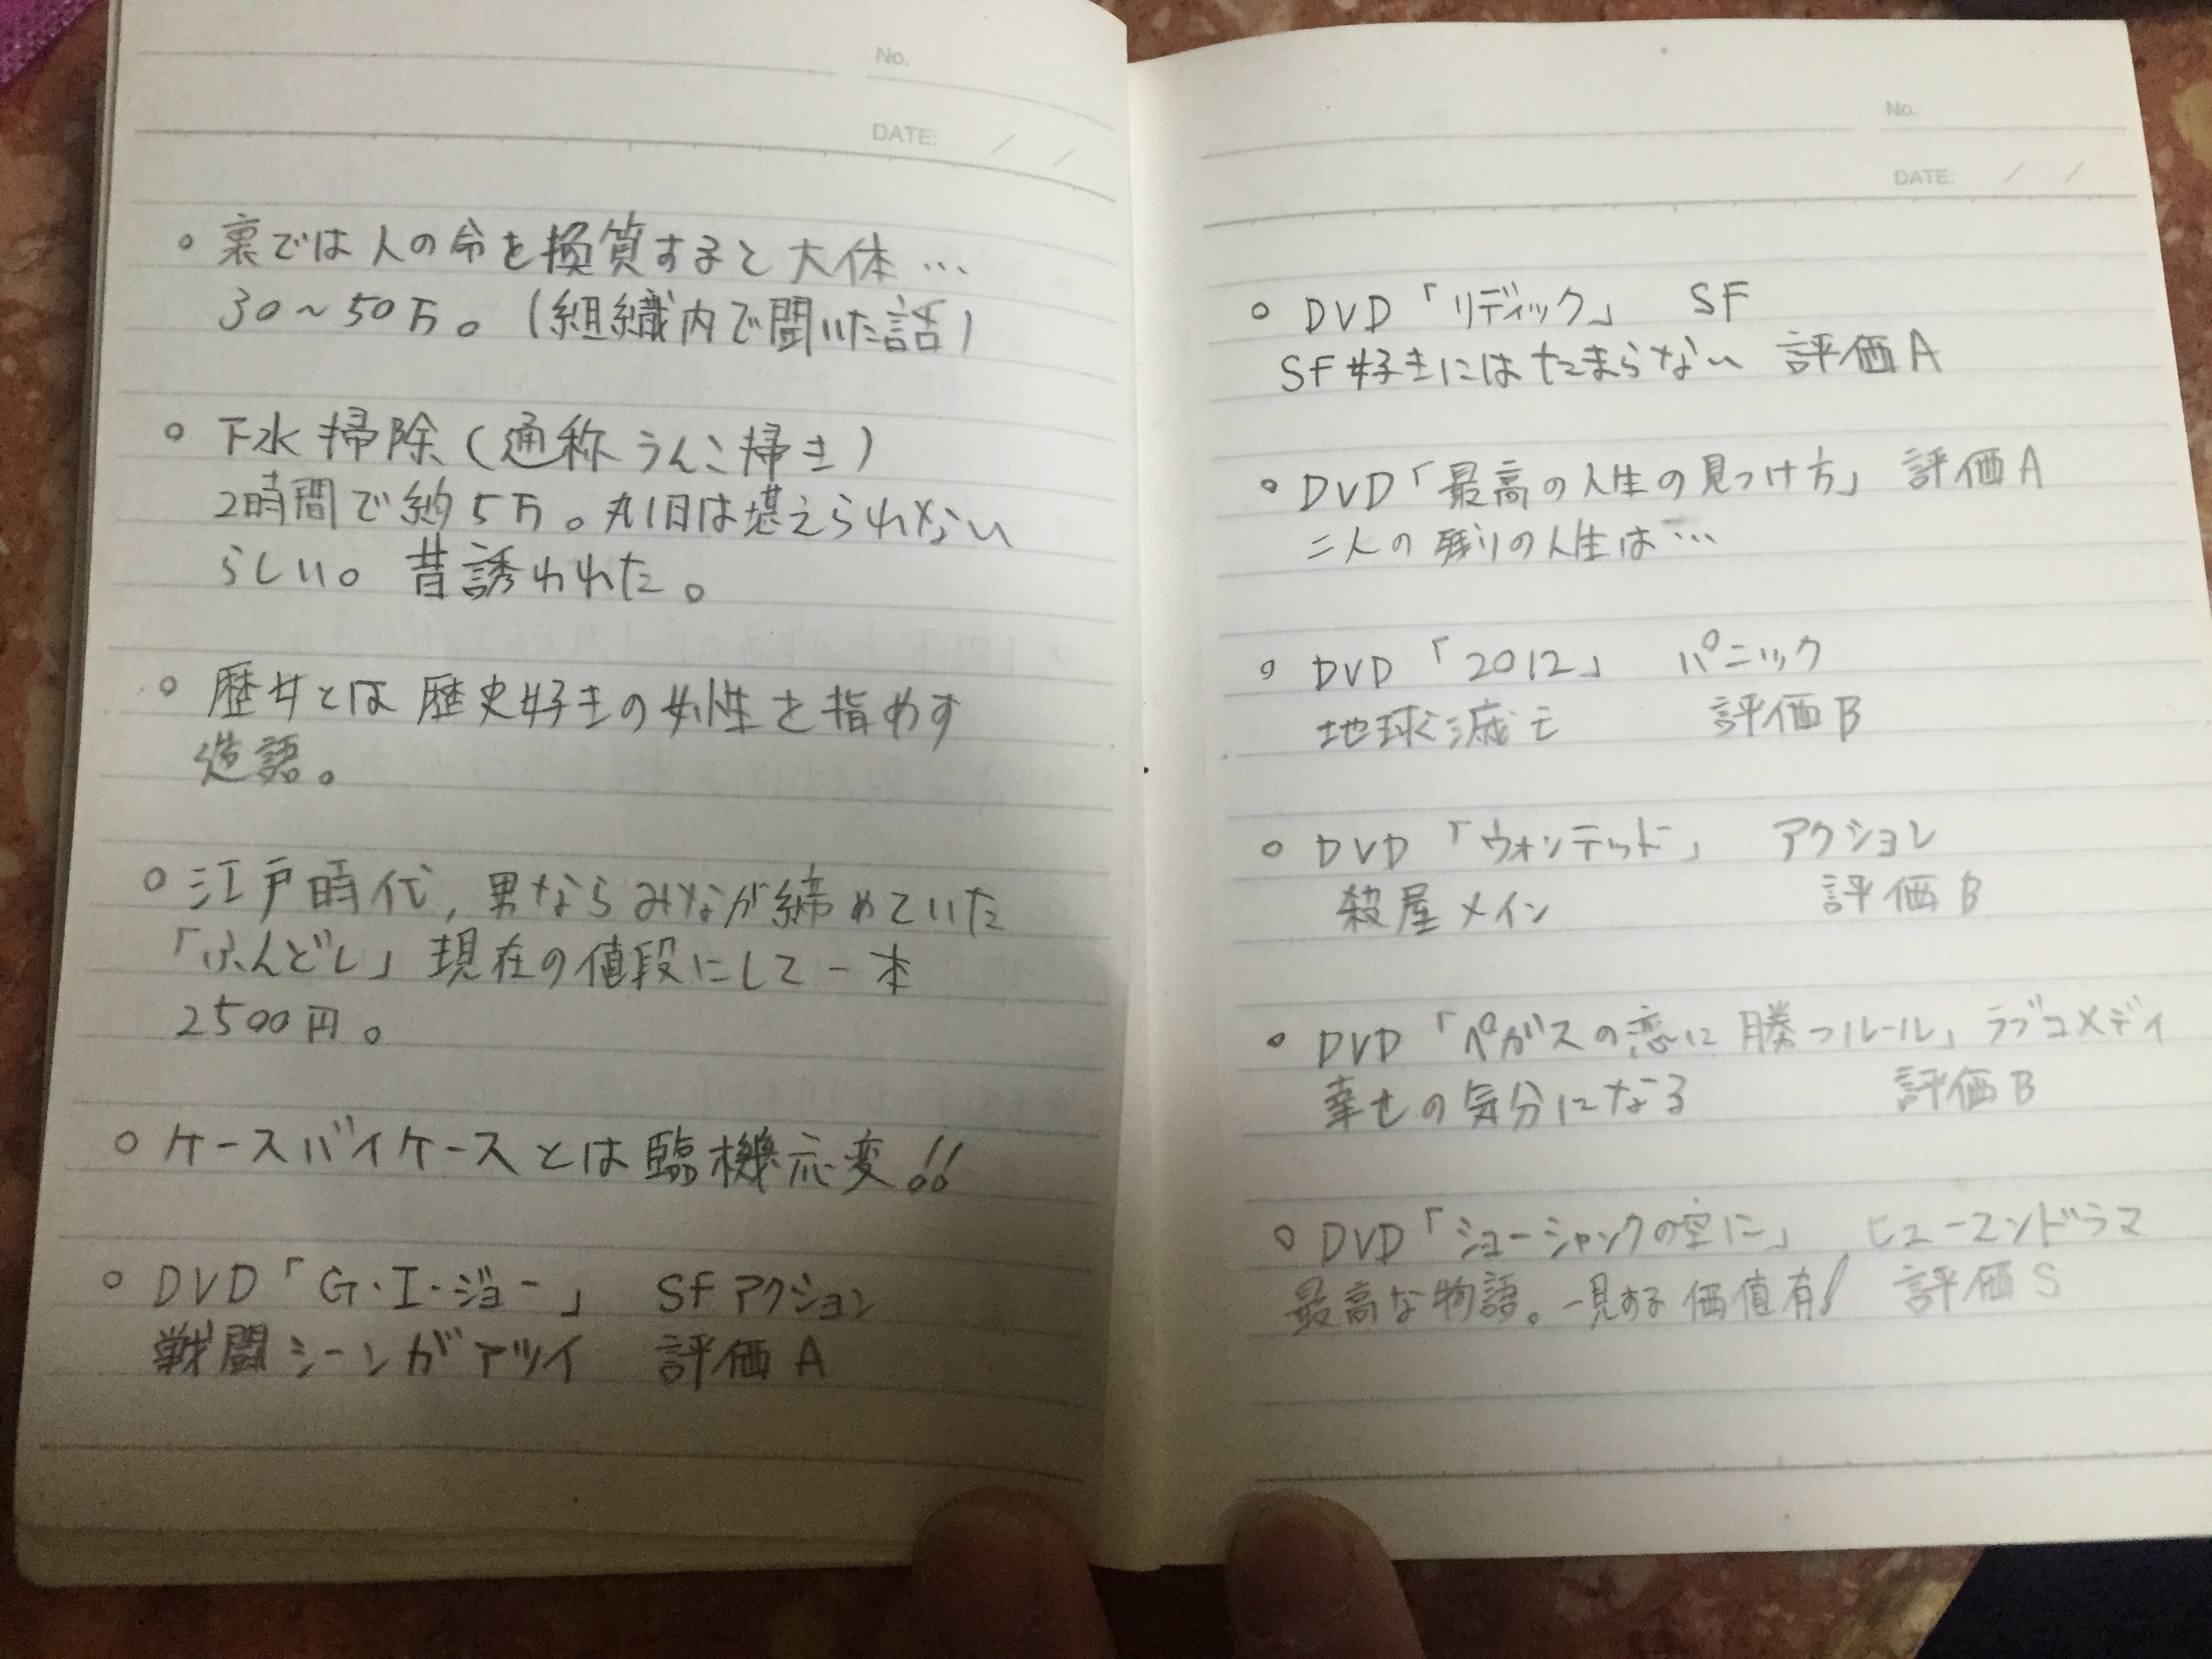 No.
DATE: / /
○ 裏では人の命を換質すると大体…
30～50万。(組織内で聞いた話)
○ 下水掃除(通称うんこ掃き)
2時間で約5万。丸1日は堪えられない
らしい。昔誘われた。
○ 歴女とは歴史好きの女性を指めす
造語。
○ 江戸時代,男ならみなが締めていた
「ふんどし」現在の値段にして一本
2500円。
○ ケースバイケースとは臨機応変!!
○ DVD「G・I・ジョー」 SFアクション
戦闘シーンがアツイ 評価A
No.
DATE: / /
○ DVD「リディック」 SF
SF好きにはたまらない 評価A
○ DVD「最高の人生の見つけ方」 評価A
二人の残りの人生は…
○ DVD「2012」 パニック
地球滅亡 評価B
○ DVD「ウォンテッド」 アクション
殺屋メイン 評価B
○ DVD「ペガスの恋に勝つルール」ラブコメディ
幸せの気分になる 評価B
○ DVD「ショーシャンクの空に」 ヒューマンドラマ
最高な物語。一見する価値有! 評価S